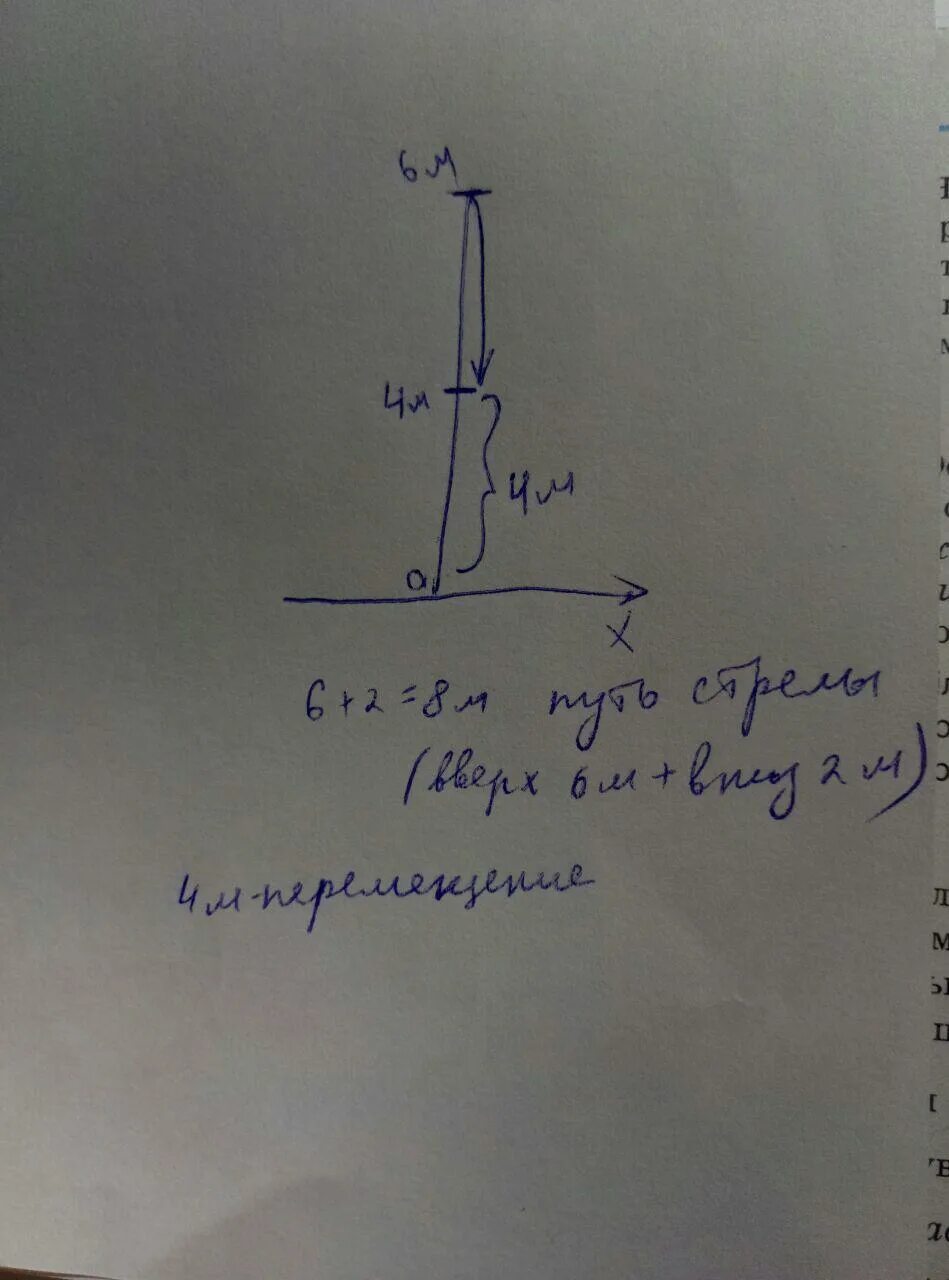 6 м
4 м
4 м
0
X
6+2=8м путь стрелы
(вверх 6м + вниз 2м)
4м-перемещение